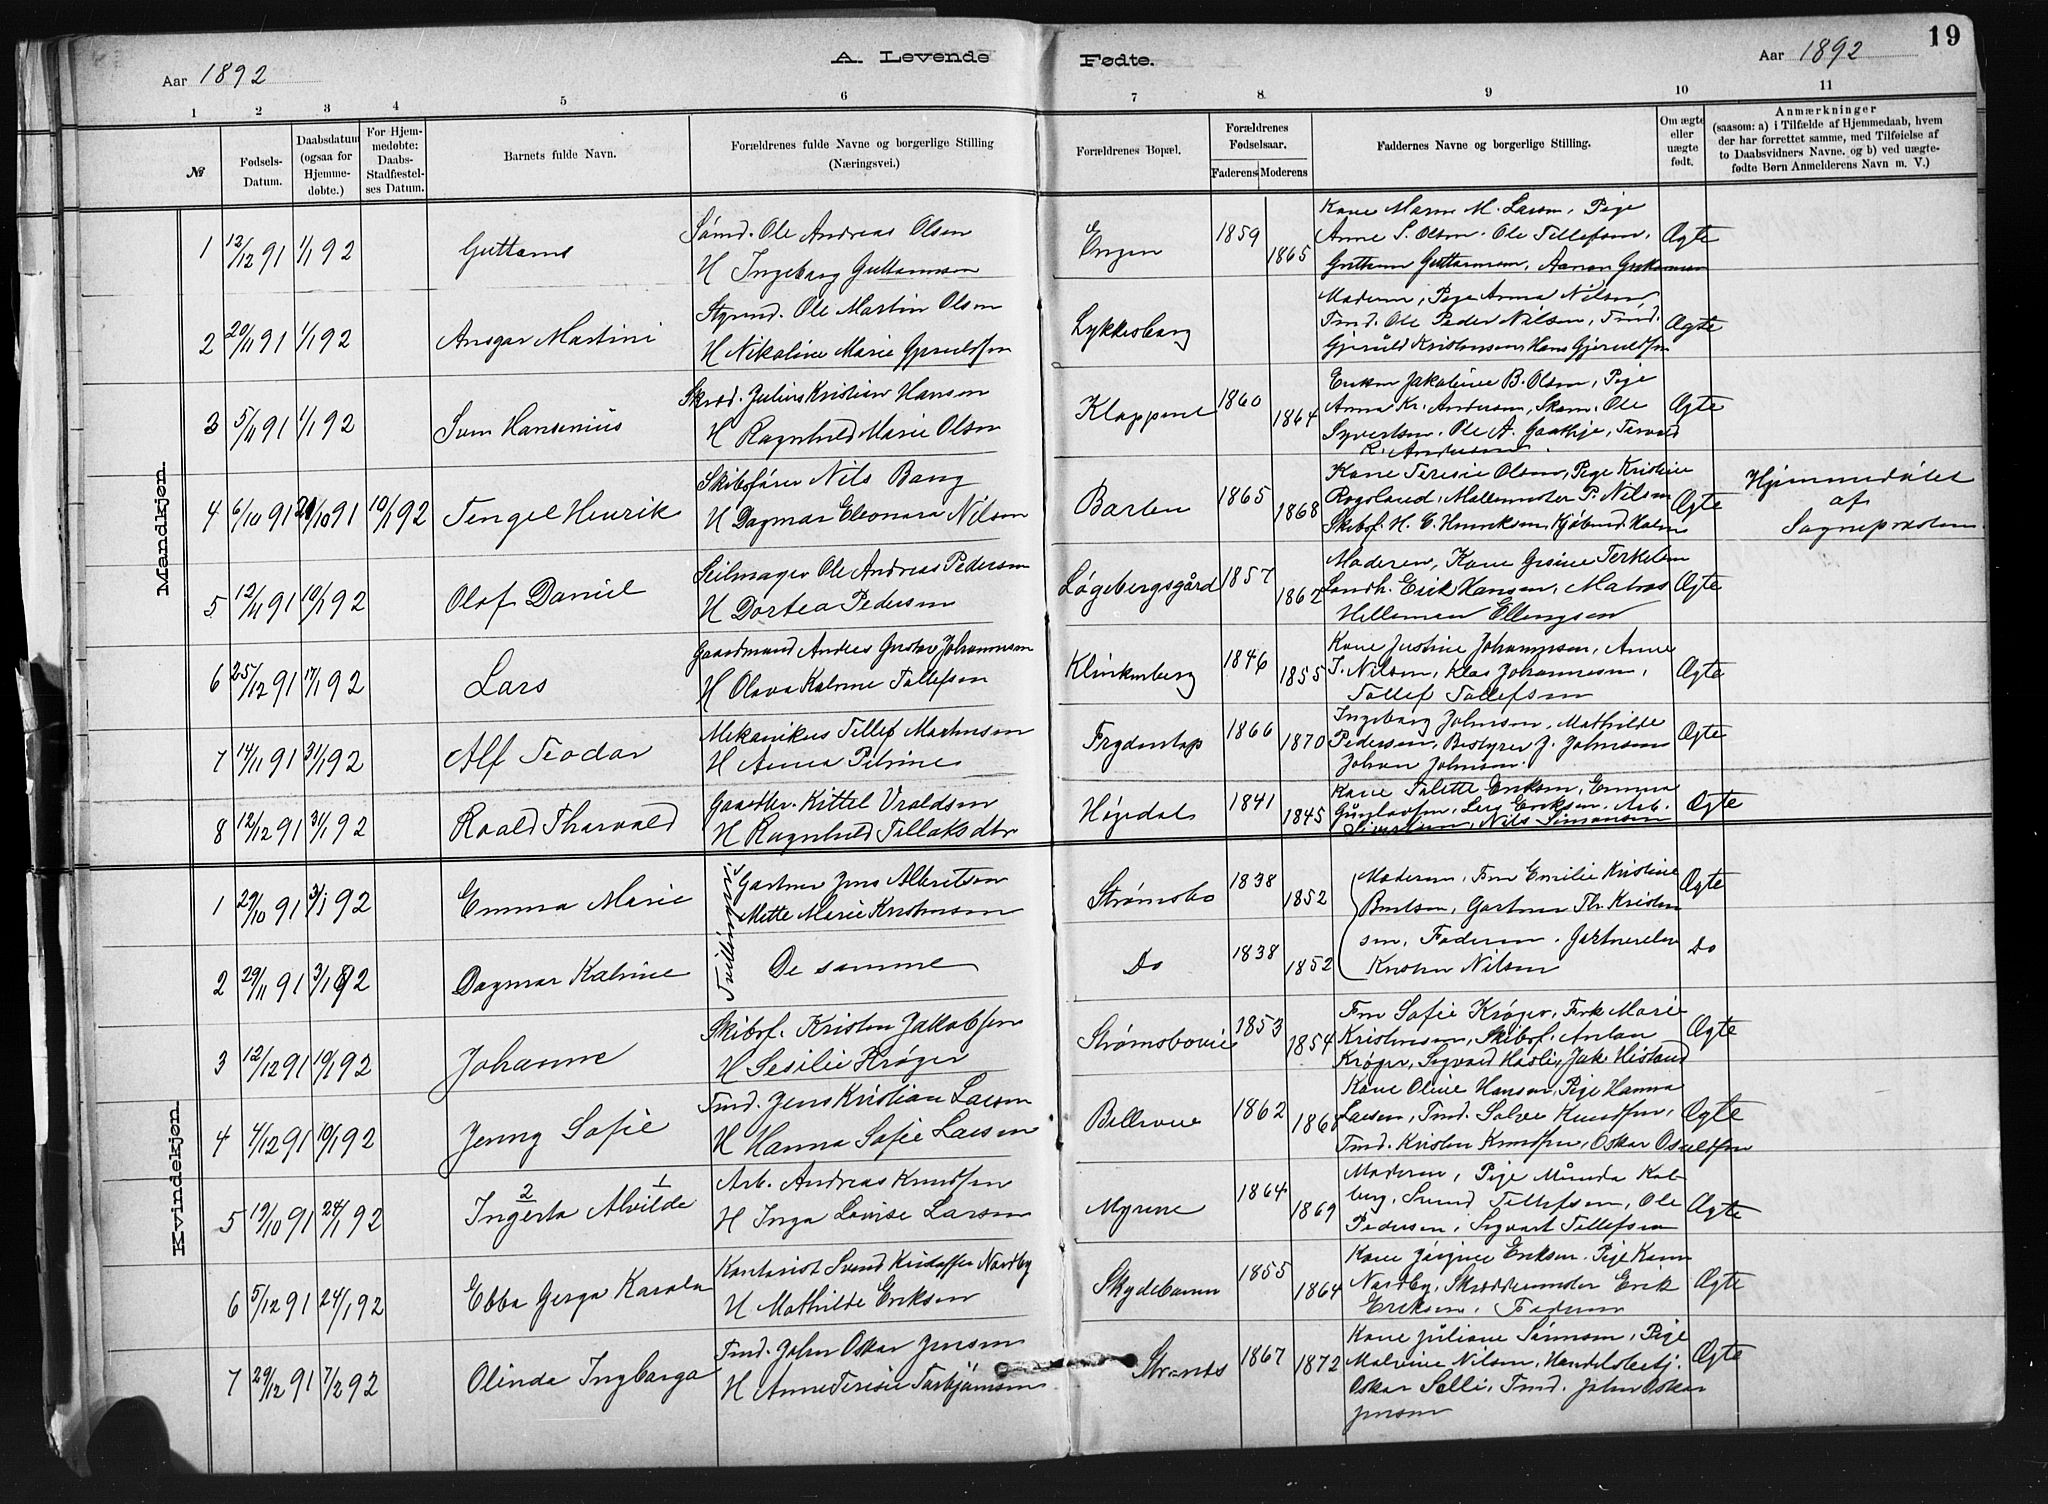 Aar 1892
A. Levende Fødte.
Aar 1892
19
1 2 3 4 5 6 7 8 9 10 11
№
Fødsels-Datum.
Daabsdatum (ogsaa for Hjemmedøbte.)
For Hjemmedøbte: Daabs-Stadfæstelses Datum.
Barnets fulde Navn.
Forældrenes fulde Navne og borgerlige Stilling (Næringsvei.)
Forældrenes Bopæl.
Forældrenes Fødselsaar.
Faderens Moderens
Faddernes Navne og borgerlige Stilling.
Om ægte eller uægte født.
Anmærkninger
(saasom: a) i Tilfælde af Hjemmedaab, hvem
der har forrettet samme, med Tilføielse af
to Daabsvidners Navne, og b) ved uægte-
fødte Børn Anmelderens Navn m. V.)
Mandkjøn.
1 12/12 91 1/1 92 Guttorm
Sømd. Ole Andreas Olsen
H Ingeborg Guttormsen
Engen 1859 1865
Kone Maren M. Larsen, Pige
Anne S. Olsen, Ole Tellefsen,
Guttorm Guttormsen, Aanon Guttormsen
Ægte
2 20/11 91 1/1 92 Ansgar Martini
Styrmd. Ole Martin Olsen
H Nikoline Marie Gjeruldsen
Lykkesborg
Moderen, Pige Anna Nilsen
Tmd. Ole Peder Nilsen, Tmd.
Gjeruld Kristensen, Hans Gjeruldsen
Ægte
3 5/11 91 1/1 92 Sven Hansenius
Skræd. Julius Kristian Hansen
H Ragnhild Marie Olsen
Kloppene 1860 1864
Enken Jakobine B. Olsen, Pige
Anna Kr. Andersen, Skom. Ole
Syvertsen, Ole A.
R. Andersen
Ægte
4 6/10 91 21/10 91 10/1 92 Tengel Henrik
Skibsfører Nils Bang
H Dagmar Eleonora Nilsen
Barlen 1865 1868
Kone Teresie Olsen, Pige Kristine
Rogeland, Møllemester P. Nilsen
Skibsf. H. C. Henriksen, Kjøbmd. Holm
Ægte
Hjemmedøbt
af
Sognepræsten
5 12/11 91 10/1 92 Olaf Daniel
Seilmager Ole Andreas Pedersen
H Dortea Pedersen
Løgebergsgård 1857 1862
Moderen, Kone Gesine Terkelsen
Landh. Erik Hansen, Matros
Helleman Ellingsen
Ægte
6 25/12 91 17/1 92 Lars
Gaardmand Andreas Gustav Johannesen
H Olava Katrine Tollefsen
Klinkenberg 1846 1855
Kone Justine Johannesen, Anne
T. Nilsen, Klas Johannesen,
Tollef Tollefsen
Ægte
7 14/11 91 31/1 92 Alf Teodor
Mekanikus Tellef Martinsen
H Anna Petrine
Frydentop 1866 1870
Ingeborg Johnsen, Mathilde
Pedersen, Bestyrer J. Johnsen
Johan Johnsen.
Ægte
8 12/12 91 31/1 92 Roald Tharvald
Gaardbr. Kittel Vraldsen
H Ragnhild Tellaksdtr
Høgedal 1841 1845
Kone Salette Eriksen, Emma
Gunlaufsen, Lars Eriksen, Arb.
Sivertsen, Nils Simonsen
Ægte
Kvindekjøn.
1 29/10 91 3/1 92 Emma Marie
Tvillinger
Gartner Jens Albretsen
Mette Marie Kristensen
Strømsbo 1838 1852
Moderen, Fru Emilie Kristine
Bertsen, Gartner Th. Kristen
sen, Faderen, Gartnerelev
Kristen Nilsen
Ægte
2 29/11 91 3/1 92 Dagmar Katrine
De samme
Do 1838 1852
Do
3 12/12 91 10/1 92 Johanne
Skibsf. Kristen Jakobsen
H Sesilie Krøger
Strømsbovie 1853 1854
Fru Sofie Krøger, Frk Marie
Kristensen, Skibsf. Anton
Krøger, Sigvald Hasli, Jak. Hisland
Ægte
4 4/12 91 10/1 92 Jenny Sofie
Tmd. Jens Kristian Larsen
H Hanna Sofie Larsen
Bellevue 1862 1868
Kone Oline Hansen, Pige Hanna
Larsen, Tmd. Salve Knudsen,
Tmd. Kristen Knudsen, Oskar Osuldsen
Ægte
5 19/10 91 24/1 92 Ingerta Alvilde
2 1
Arb. Andreas Knudsen
H Inga Lovise Larsen
Myrene 1864 1869
Moderen, Pige Munda Kol-
berg, Svend Tellefsen, Ole
Pedersen, Sigvart Tellefsen
Ægte
6 5/12 91 24/1 92 Ebba Gerga Karola
Kontorist Svend Kristoffer Nordby
H Mathilde Eriksen
Skydebanen 1855 1864
Kone Jørgine Eriksen, Pige Karen
Nordby, Skræddermester Erik
Eriksen, Faderen
Ægte
7 29/12 91 7/2 92 Olinde Ingbarga
Tmd. John Oskar Jensen
H Anne Teresie Torbjørnsen
Strands 1867 1872
Kone Juliane Sørensen, Pige
Malvine Nilsen, Handelsbetj.
Oskar Selli, Tmd. John Oskar
Jensen
Ægte